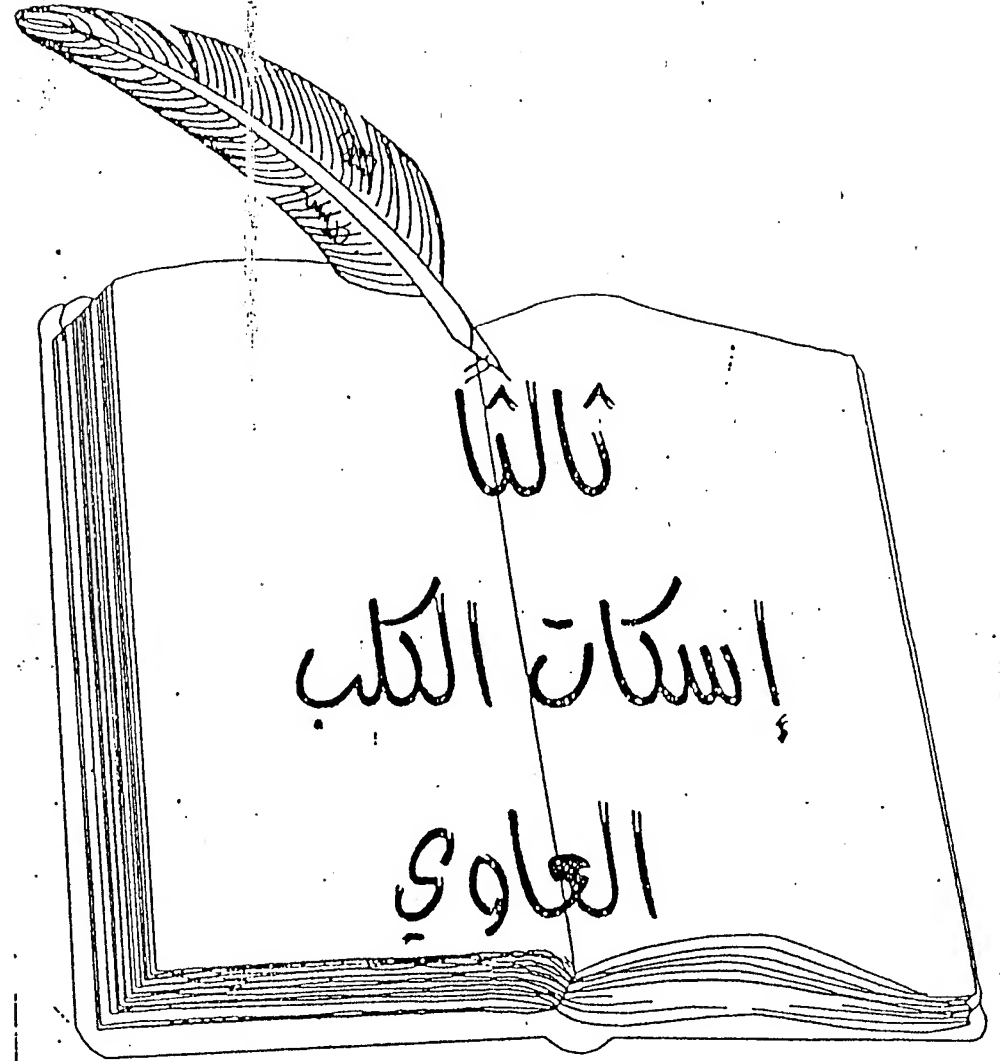 ثالثا
إسكات الكلب
العاوي